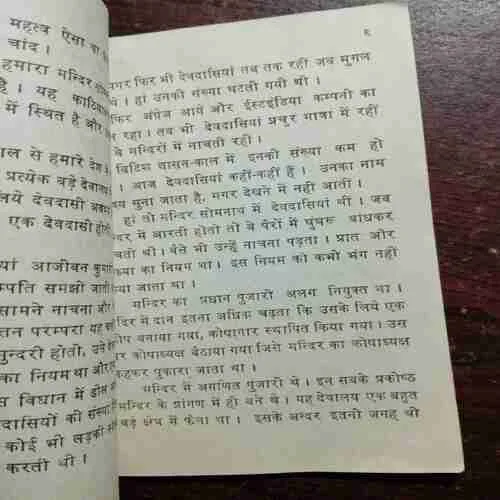 महत्व ऐसा था
चांद ।
हमारा मन्दिर
है । यह काठिया
में स्थित है और
से हमारे देश
प्रत्येक बड़े देवालय
लिये देवदासी
एक देवदासी होती
आजीवन
सम्पति समझी जाती
सामने नाचना और
परम्परा यह
सुन्दरी होती, उसे
का नियम था और
विधान में ढोल
देवदासियों की संख्या
कोई भी लड़की
करती थी ।
९
मगर फिर भी देवदासियां तब तक रहीं जब मुगल
थे । हां उनकी संख्या घटती गयी थी ।
फिर अंग्रेज आये और ईस्टइंडिया कम्पनी का
रहा । तब भी देवदासियां प्रचुर मात्रा में रहीं
वे मन्दिरों में नाचती रहीं ।
ब्रिटिश शासन-काल में इनकी संख्या कम हो
। आज देवदासियां कहीं-कहीं हैं । उनका नाम
सुना जाता है, मगर देखने में नहीं आतीं ।
हां तो मन्दिर सोमनाथ में देवदासियां थीं । जब
में आरती होती तो वे पैरों में घुंघरू बांधकर
नाचती थीं । वैसे भी उन्हें नाचना पड़ता । प्रात और
का नियम था । इस नियम को कभी भंग नहीं
किया जाता था ।
मन्दिर का प्रधान पुजारी अलग नियुक्त था ।
मन्दिर में दान इतना अधिक चढ़ता कि उसके लिये एक
कोष बनाया गया, कोषागार स्थापित किया गया । उस
पर कोषाध्यक्ष बैठाया गया जिसे मन्दिर का कोषाध्यक्ष
कहकर पुकारा जाता था ।
मन्दिर में अगणित पुजारी थे । इन सबके प्रकोष्ठ
मन्दिर के प्रांगण में ही बने थे । यह देवालय एक बहुत
बड़े क्षेत्र में फैला था । इसके अन्दर इतनी जगह थी